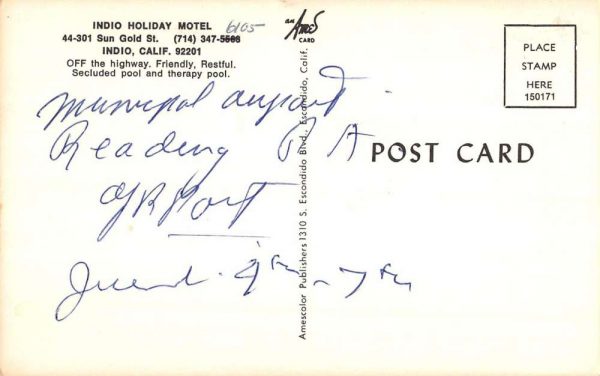 INDIO HOLIDAY MOTEL
44-301 Sun Gold St. (714) 347-5508 6105
INDIO, CALIF. 92201
OFF the highway. Friendly, Restful.
Secluded pool and therapy pool.
an Ames CARD
PLACE
STAMP
HERE
150171
POST CARD
Amescolor Publishers 1310 S. Escondido Blvd., Escondido, Calif.
Municipal airport
Reading PA